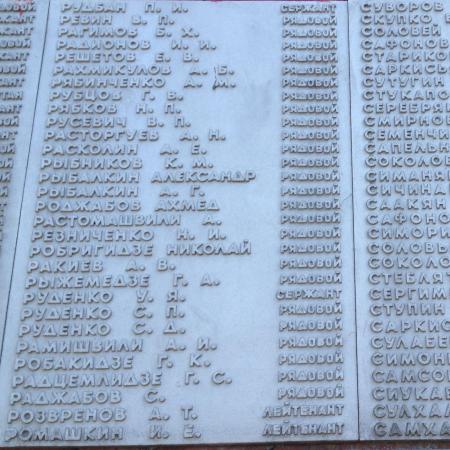 РУДБАН П. И. СЕРЖАНТ
РЕВИН В. П. РЯДОВОЙ
РАГИМОВ Б. Х. РЯДОВОЙ
РАДИОНОВ И. И. РЯДОВОЙ
РЕШЕТОВ Е. В. РЯДОВОЙ
РАХМИКУЛОВ А. Б. РЯДОВОЙ
РЯБИНЧЕНКО А. М. РЯДОВОЙ
РУБЦОВ Г. В. РЯДОВОЙ
РЯБКОВ Н. П. РЯДОВОЙ
РУСЕВИЧ В. П. РЯДОВОЙ
РАСТОРГУЕВ А. Н. РЯДОВОЙ
РАСКОЛИН А. Е. РЯДОВОЙ
РЫБНИКОВ К. М. РЯДОВОЙ
РЫБАЛКИН АЛЕКСАНДР РЯДОВОЙ
РЫБАЛКИН А. Г. РЯДОВОЙ
РОДЖАБОВ АХМЕД РЯДОВОЙ
РАСТОМАШВИЛИ А. РЯДОВОЙ
РЕЗНИЧЕНКО Н. И. РЯДОВОЙ
РОБРИГИДЗЕ НИКОЛАЙ РЯДОВОЙ
РАКИЕВ А. В. РЯДОВОЙ
РЫЖЕМЕДЗЕ Г. А. РЯДОВОЙ
РУДЕНКО У. Я. СЕРЖАНТ
РУДЕНКО С. П. РЯДОВОЙ
РУДЕНКО С. Д. РЯДОВОЙ
РАМИШВИЛИ А. И. РЯДОВОЙ
РОБАКИДЗЕ Г. К. РЯДОВОЙ
РАДЦЕМЛИДЗЕ Г. С. РЯДОВОЙ
РАДЖАБОВ С. РЯДОВОЙ
РОЗВРЕНОВ А. Т. ЛЕЙТЕНАНТ
РОМАШКИН И. Е. ЛЕЙТЕНАНТ
СУВОРОВ
СКУПКО
СОЛОВЕЙ
САФОНОВ
СТАРИКО
САРКИСЬ
СУТУГИН
СТУКАПО
СЕРЕБРЯ
СМИРНО
СЕМЕНЧИ
САПЕЛЬН
СОКОЛО
СИМАНЯ
СИЧИНА
СААКЯН
САФОНО
СИМОРИ
СОЛОВЬ
СОКОЛО
СТЕБЛЯ
СЕРГИМ
СТУПИН
САРКИС
СУЛАБЕ
СИМОНИ
САМСО
СИУКАЕ
СУЛХА
САМХА